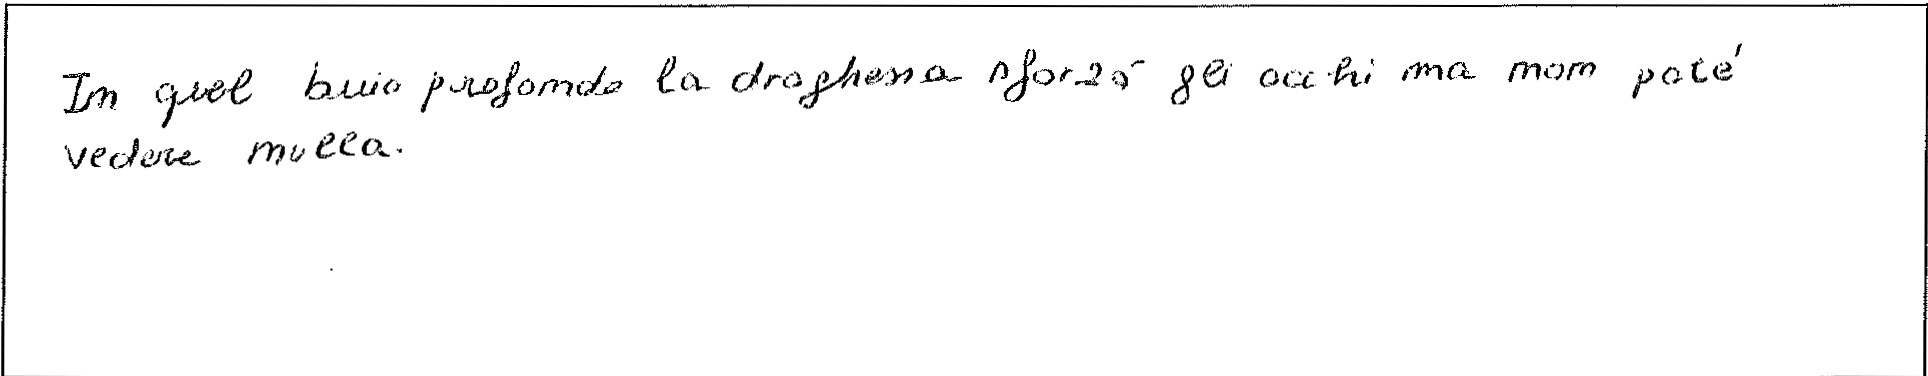 In quel buio profondo la draghessa sforzò gli occhi ma non poté
vedere nulla.